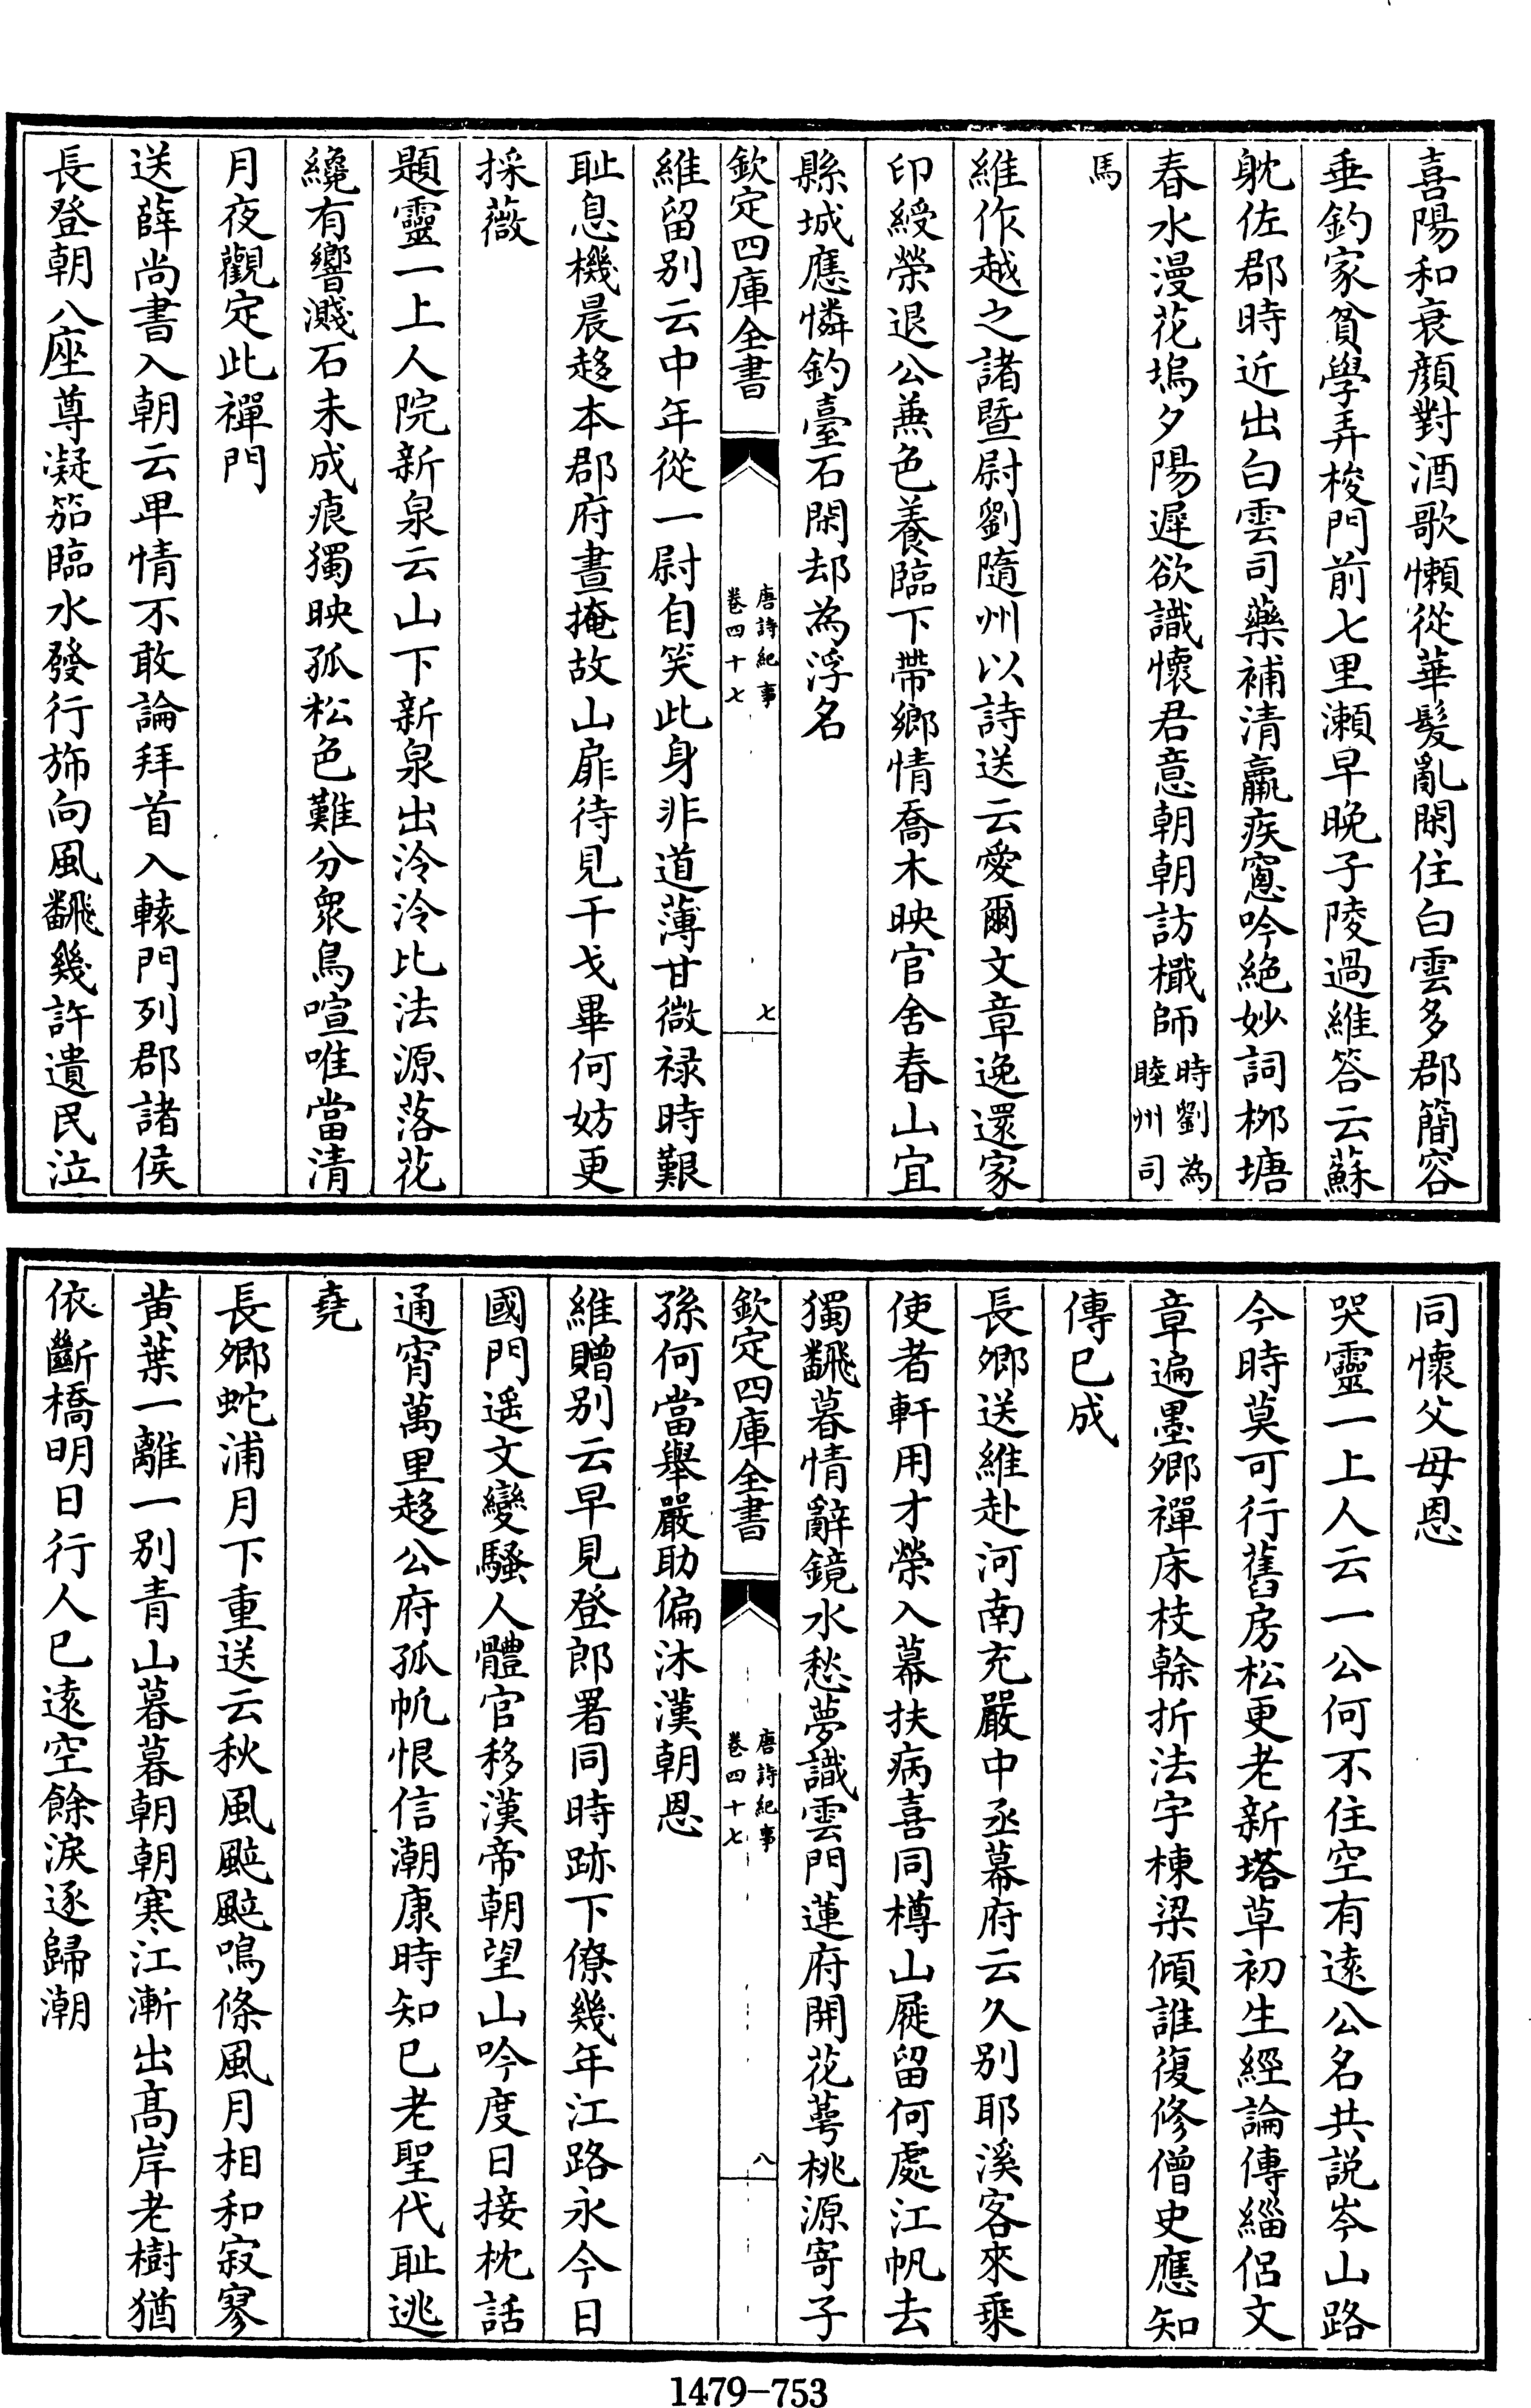 喜陽和衰顔對酒歌懶從華髮亂閑住白雲多郡簡容
垂釣家貧學弄梭門前七里瀬早晚子陵過維答云蘇
躭佐郡時近出白雲司藥補清羸疾窻吟絶妙詞栁塘
春水漫花塢夕陽遲欲識懷君意朝朝訪檝師時劉為睦州司
馬
維作越之諸暨尉劉隨州以詩送云愛爾文章逸還家
印綬榮退公兼色養臨下帶鄉情喬木映官舍春山宜
縣城應憐釣臺石閑却為浮名
欽定四庫全書
唐詩紀事
卷四十七
七
維留别云中年從一尉自笑此身非道薄甘微禄時艱
耻息機晨趍本郡府晝掩故山扉待見干戈畢何妨更
採薇
題靈一上人院新泉云山下新泉出泠泠比法源落花
纔有響濺石未成痕獨映孤松色難分衆鳥喧唯當清
月夜觀定此禪門
送薛尚書入朝云卑情不敢論拜首入轅門列郡諸侯
長登朝八座尊凝笳臨水發行斾向風飜幾許遺民泣
同懷父母恩
哭靈一上人云一公何不住空有逺公名共説岑山路
今時莫可行舊房松更老新塔草初生經論傳緇侣文
章遍墨卿禪床枝幹折法宇棟梁傾誰復修僧史應知
傳已成
長卿送維赴河南充嚴中丞幕府云久别耶溪客來乗
使者軒用才榮入幕扶病喜同樽山屐留何處江帆去
獨飜暮情辭鏡水愁夢識雲門蓮府開花萼桃源寄子
欽定四庫全書
唐詩紀事
卷四十七
八
孫何當舉嚴助偏沐漢朝恩
維贈别云早見登郎署同時跡下僚幾年江路永今日
國門遥文變騷人體官移漢帝朝望山吟度日接枕話
通宵萬里趍公府孤帆恨信潮康時知已老聖代耻逃
堯
長卿蛇浦月下重送云秋風颭颭鳴條風月相和寂寥
黄葉一離一别青山暮暮朝朝寒江漸出髙岸老樹猶
依斷橋明日行人已逺空餘淚逐歸潮
1479-753